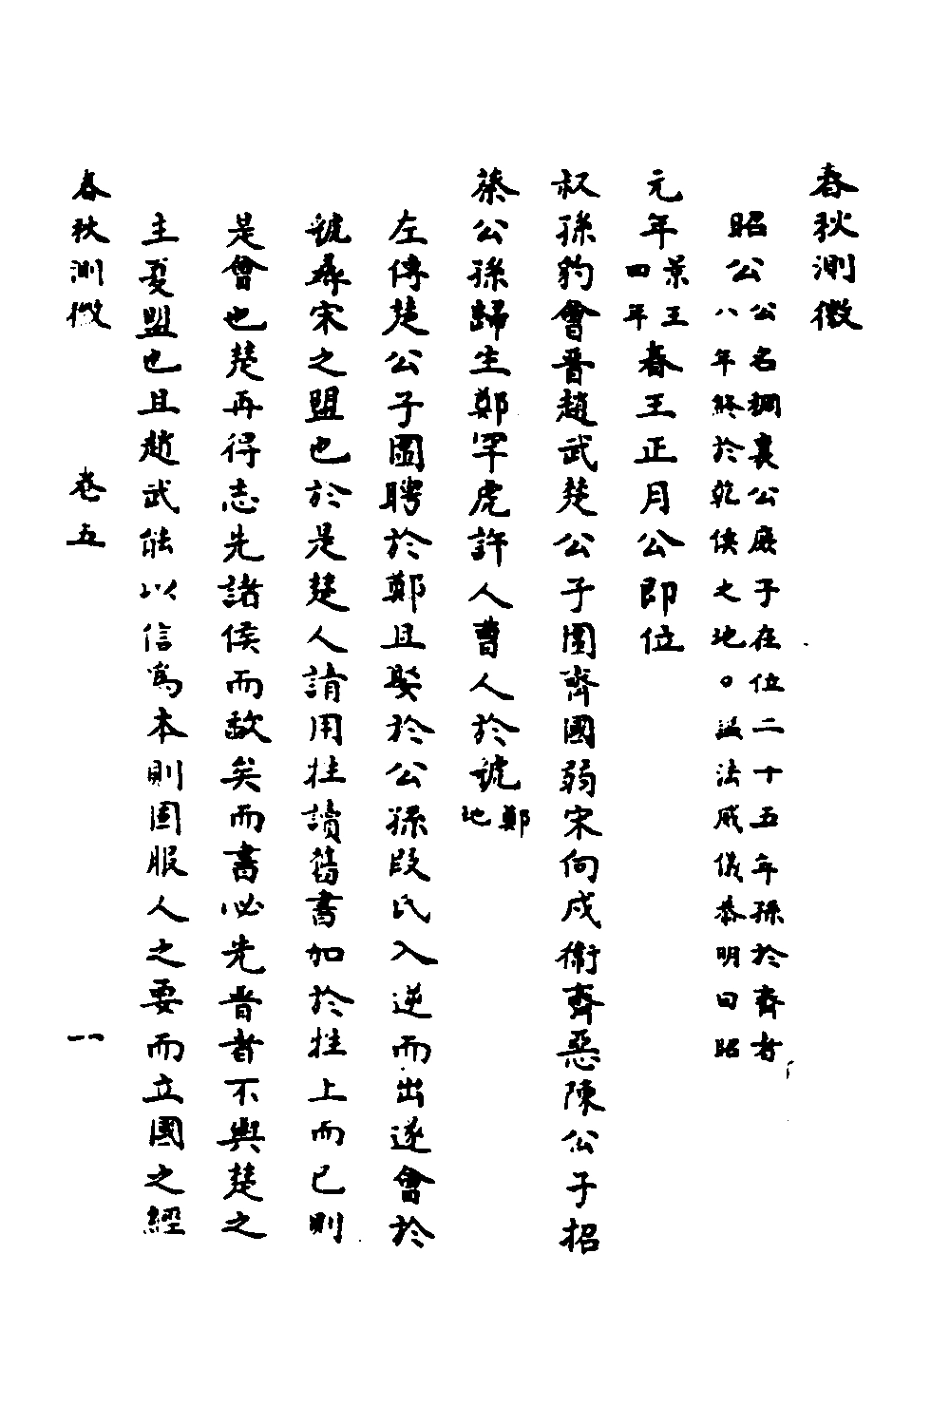 春秋測微
昭公公名稠襄公庶子在位二十五年孫於齊者八年終於乾侯之地。諡法威儀恭明曰昭
元年景王四年春王正月公即位
叔孫豹會晋趙武楚公子圍齊國弱宋向戍衞齊惡陳公子招
蔡公孫歸生鄭罕虎許人曹人於虢鄭地
左傳楚公子圍聘於鄭且娶於公孫段氏入逆而出遂會於
虢尋宋之盟也於是楚人請用牲讀舊書加於牲上而已則
是會也楚再得志先諸侯而歃矣而書必先晋者不與楚之
主夏盟也且趙武能以信為本則固服人之要而立國之經
春秋測微 卷五 一